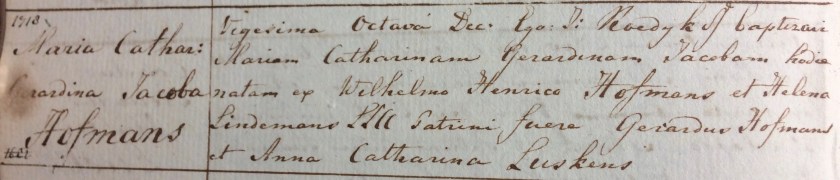 1713
Maria Cathar:
Gerardina Jacoba
Hofmans
Vigesima Octavá Dec: Ego: J: Roedyk SJ baptizavi
Mariam Catharinam Gerardinam Jacobam hodie
natam ex Wilhelmo Henrico Hofmans et Helena
Lindemans Patrini fuere Gerardus Hofmans
et Anna Catharina Luskens